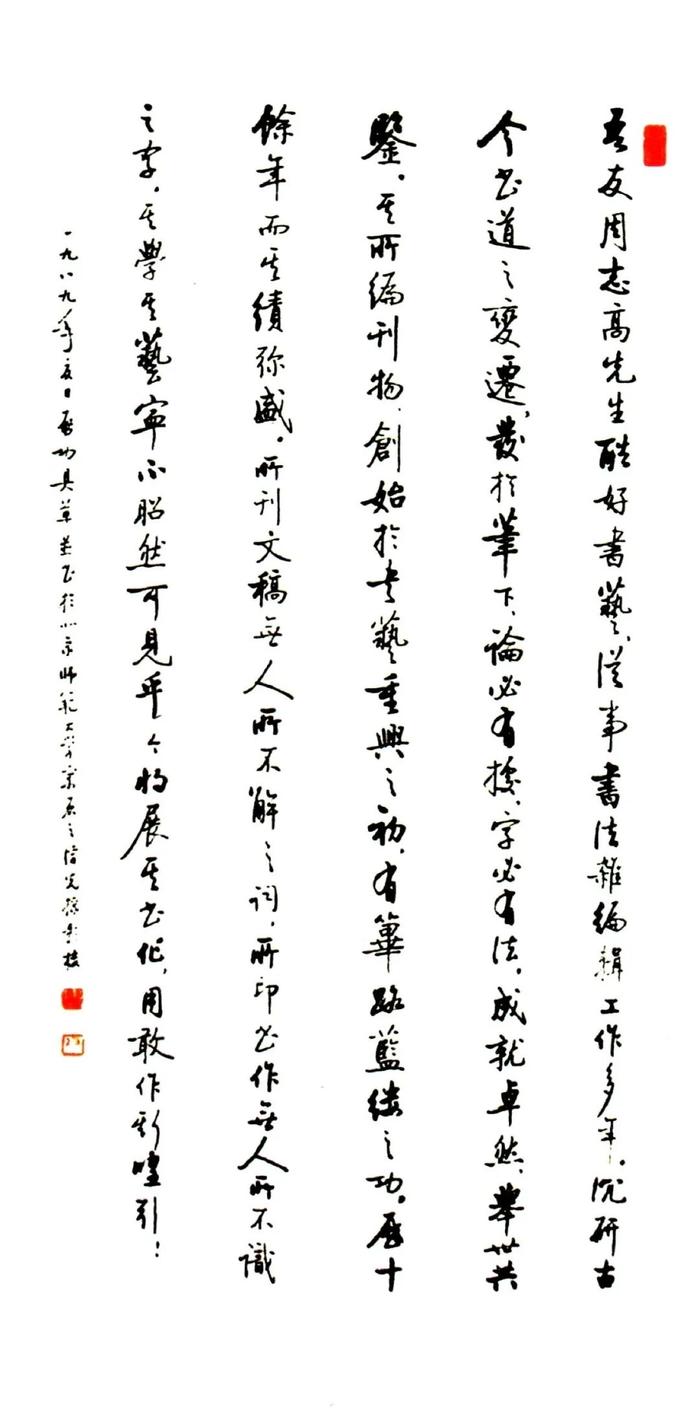 吾友周志高先生酷好書藝，從事書法雜編輯工作多年。沉研古
今书道之變遷，發於筆下，論必有據，字必有法。成就卓然，舉世共
鑒。其所編刊物，創始於书藝重興之初，有篳路藍縷之功。歷十
餘年而其績弥盛。所刊文稿無人所不解之詞，所印书作無人所不識
之字。其學其藝寧不昭然可見乎！今將展其书作，用敢作斯喤引！
一九八九年夏日啟功具草並书於北京師範大學宿舍之